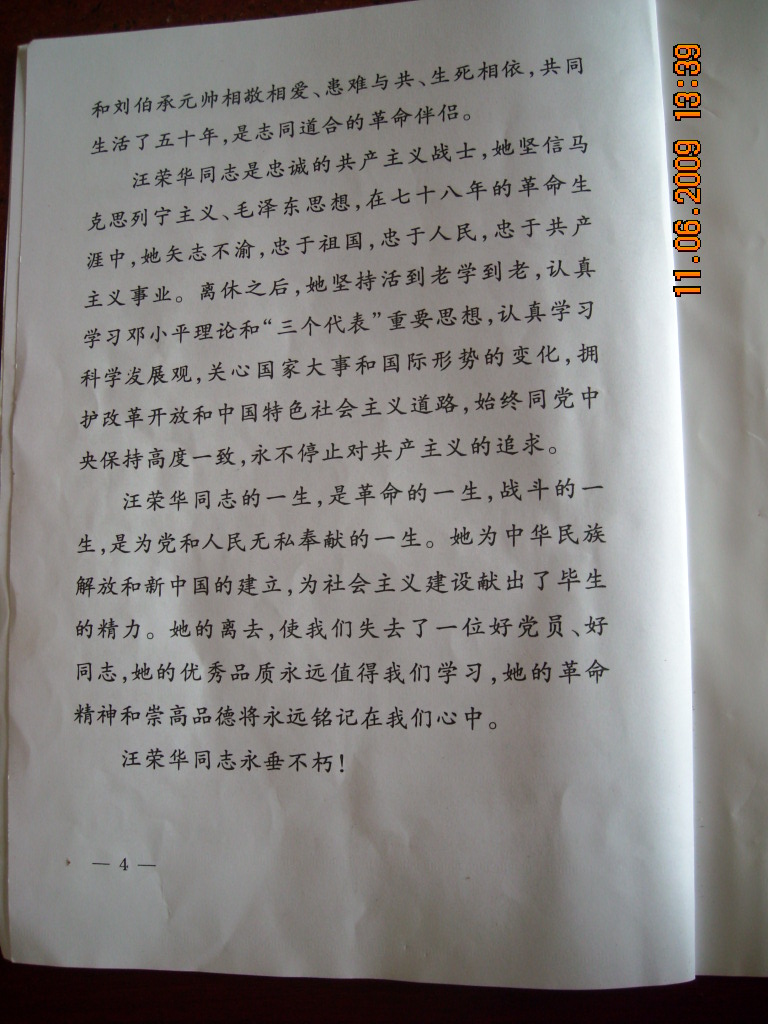 和刘伯承元帅相敬相爱、患难与共、生死相依，共同
生活了五十年，是志同道合的革命伴侣。
汪荣华同志是忠诚的共产主义战士，她坚信马
克思列宁主义、毛泽东思想，在七十八年的革命生
涯中，她矢志不渝，忠于祖国，忠于人民，忠于共产
主义事业。离休之后，她坚持活到老学到老，认真
学习邓小平理论和“三个代表”重要思想，认真学习
科学发展观，关心国家大事和国际形势的变化，拥
护改革开放和中国特色社会主义道路，始终同党中
央保持高度一致，永不停止对共产主义的追求。
汪荣华同志的一生，是革命的一生，战斗的一
生，是为党和人民无私奉献的一生。她为中华民族
解放和新中国的建立，为社会主义建设献出了毕生
的精力。她的离去，使我们失去了一位好党员、好
同志，她的优秀品质永远值得我们学习，她的革命
精神和崇高品德将永远铭记在我们心中。
汪荣华同志永垂不朽！
— 4 —
11.06.2009 13:39